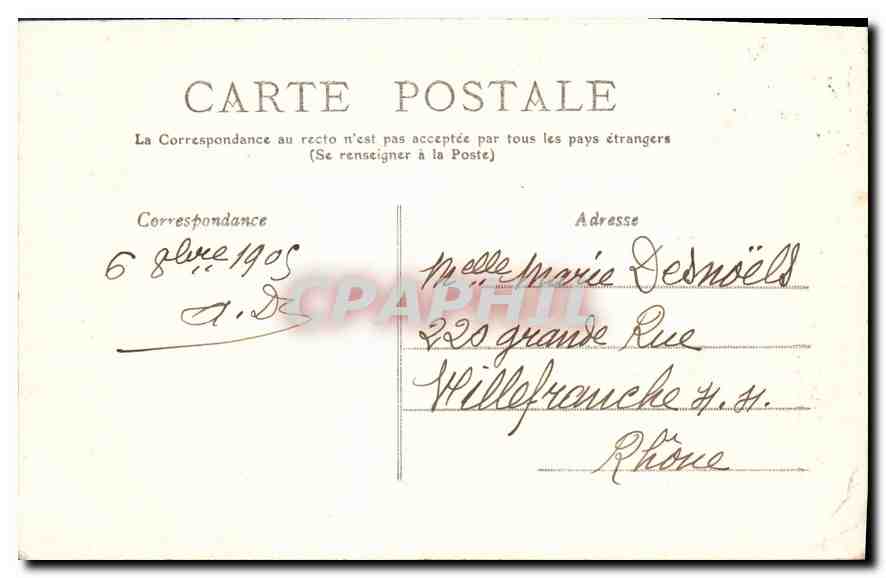 CARTE POSTALE
La Correspondance au recto n'est pas acceptée par tous les pays étrangers
(Se renseigner à la Poste)
Correspondance
6 8bre 1905
a. D
Adresse
Melle Marie Desnoëls
220 grande Rue
Villefranche
Rhône
CPAPHIL